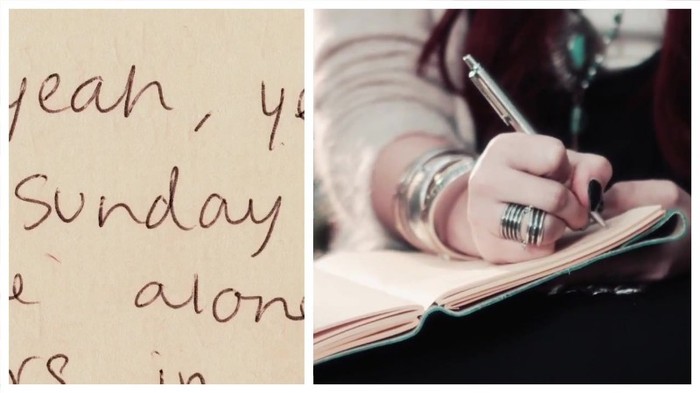 yeah, ye
Sunday
e alon
rs in